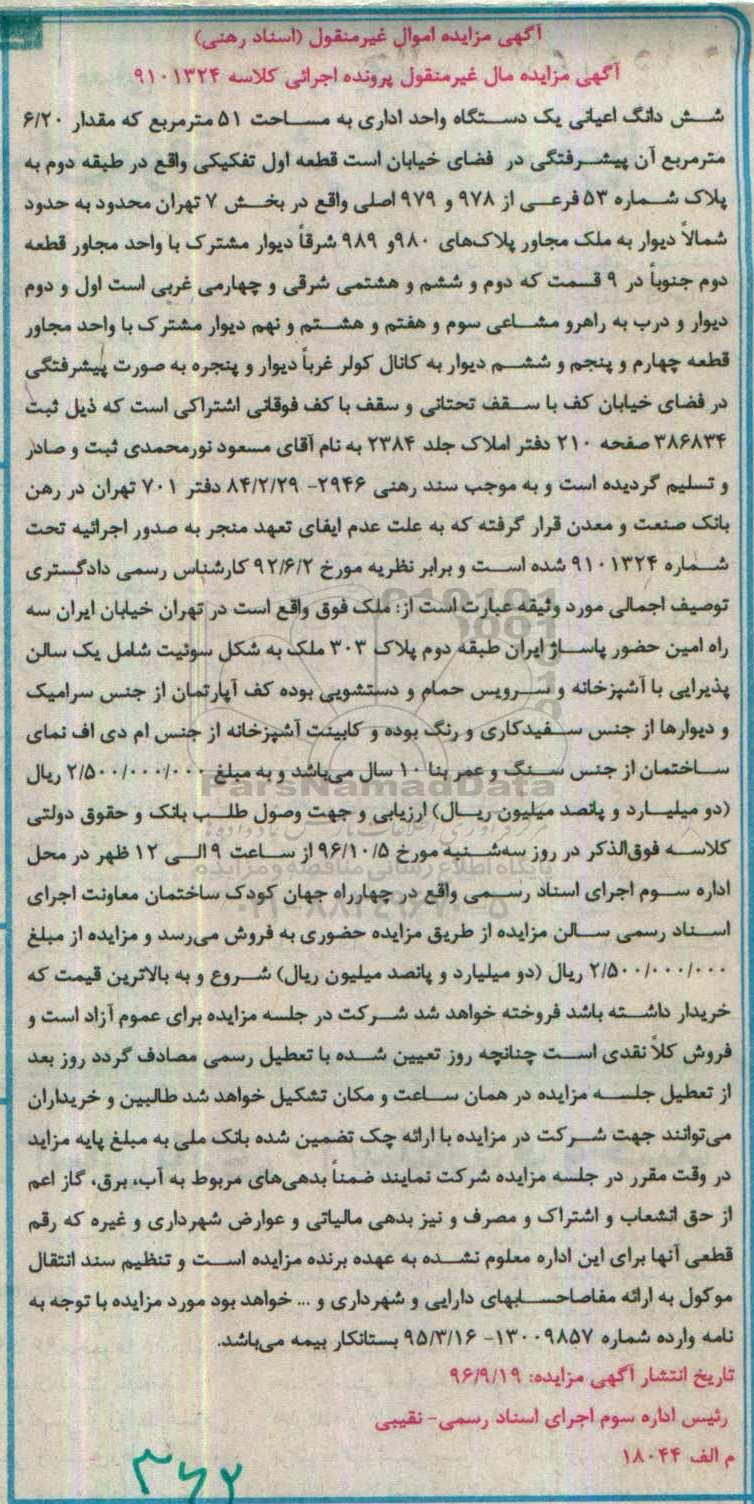 آگهی مزایده اموال غیرمنقول (اسناد رهنی)
آگهی مزایده مال غیرمنقول پرونده اجرائی کلاسه ۹۱۰۱۳۲۴
شش دانگ اعیانی یک دستگاه واحد اداری به مساحت ۵۱ مترمربع که مقدار ۶/۲۰
مترمربع آن پیشرفتگی در فضای خیابان است قطعه اول تفکیکی واقع در طبقه دوم به
پلاک شماره ۵۳ فرعی از ۹۷۸ و ۹۷۹ اصلی واقع در بخش ۷ تهران محدود به حدود
شمالاً دیوار به ملک مجاور پلاک‌های ۹۸۰ و ۹۸۹ شرقاً دیوار مشترک با واحد مجاور قطعه
دوم جنوباً در ۹ قسمت که دوم و ششم و هشتمی شرقی و چهارمی غربی است اول و دوم
دیوار و درب به راهرو مشاعی سوم و هفتم و هشتم و نهم دیوار مشترک با واحد مجاور
قطعه چهارم و پنجم و ششم دیوار به کانال کولر غرباً دیوار و پنجره به صورت پیشرفتگی
در فضای خیابان کف با سقف تحتانی و سقف با کف فوقانی اشتراکی است که ذیل ثبت
۳۸۶۸۳۴ صفحه ۲۱۰ دفتر املاک جلد ۲۳۸۴ به نام آقای مسعود نورمحمدی ثبت و صادر
و تسلیم گردیده است و به موجب سند رهنی ۲۹۴۶- ۸۴/۲/۲۹ دفتر ۷۰۱ تهران در رهن
بانک صنعت و معدن قرار گرفته که به علت عدم ایفای تعهد منجر به صدور اجرائیه تحت
شماره ۹۱۰۱۳۲۴ شده است و برابر نظریه مورخ ۹۲/۶/۲ کارشناس رسمی دادگستری
توصیف اجمالی مورد وثیقه عبارت است از: ملک فوق واقع است در تهران خیابان ایران سه
راه امین حضور پاساژ ایران طبقه دوم پلاک ۳۰۳ ملک به شکل سوئیت شامل یک سالن
پذیرایی با آشپزخانه و سرویس حمام و دستشویی بوده کف آپارتمان از جنس سرامیک
و دیوارها از جنس سفیدکاری و رنگ بوده و کابینت آشپزخانه از جنس ام دی اف نمای
ساختمان از جنس سنگ و عمر بنا ۱۰ سال می‌باشد و به مبلغ ۲/۵۰۰/۰۰۰/۰۰۰ ریال
ParsNamadData
(دو میلیارد و پانصد میلیون ریال) ارزیابی و جهت وصول طلب بانک و حقوق دولتی
کلاسه فوق‌الذکر در روز سه‌شنبه مورخ ۹۶/۱۰/۵ از ساعت ۹ الی ۱۲ ظهر در محل
پایگاه اطلاع رسانی مناقصه و مزایده
اداره سوم اجرای اسناد رسمی واقع در چهارراه جهان کودک ساختمان معاونت اجرای
اسناد رسمی سالن مزایده از طریق مزایده حضوری به فروش می‌رسد و مزایده از مبلغ
۲/۵۰۰/۰۰۰/۰۰۰ ریال (دو میلیارد و پانصد میلیون ریال) شروع و به بالاترین قیمت که
خریدار داشته باشد فروخته خواهد شد شرکت در جلسه مزایده برای عموم آزاد است و
فروش کلاً نقدی است چنانچه روز تعیین شده با تعطیل رسمی مصادف گردد روز بعد
از تعطیل جلسه مزایده در همان ساعت و مکان تشکیل خواهد شد طالبین و خریداران
می‌توانند جهت شرکت در مزایده با ارائه چک تضمین شده بانک ملی به مبلغ پایه مزاید
در وقت مقرر در جلسه مزایده شرکت نمایند ضمناً بدهی‌های مربوط به آب، برق، گاز اعم
از حق انشعاب و اشتراک و مصرف و نیز بدهی مالیاتی و عوارض شهرداری و غیره که رقم
قطعی آنها برای این اداره معلوم نشده به عهده برنده مزایده است و تنظیم سند انتقال
موکول به ارائه مفاصاحسابهای دارایی و شهرداری و ... خواهد بود مورد مزایده با توجه به
نامه وارده شماره ۱۳۰۰۹۸۵۷- ۹۵/۳/۱۶ بستانکار بیمه می‌باشد.
تاریخ انتشار آگهی مزایده: ۹۶/۹/۱۹
رئیس اداره سوم اجرای اسناد رسمی- نقیبی
م الف ۱۸۰۴۴
۳۶۲